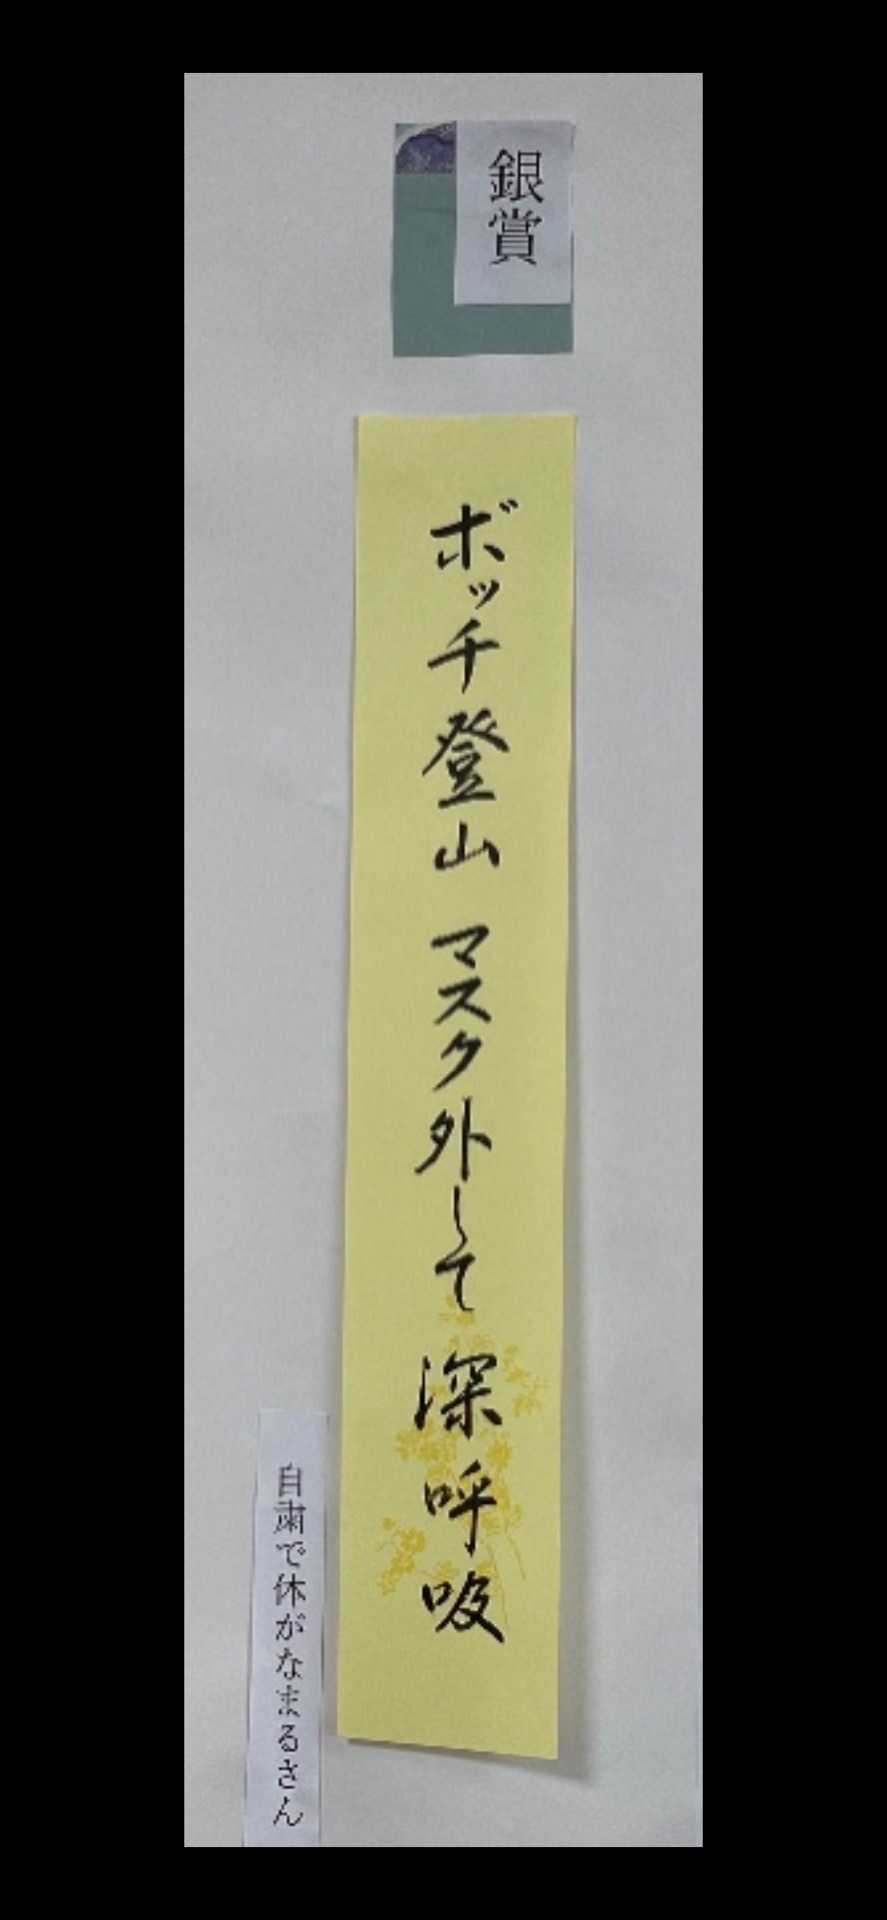 銀賞
ボッチ登山 マスク外して 深呼吸
自粛で休がなまるさん